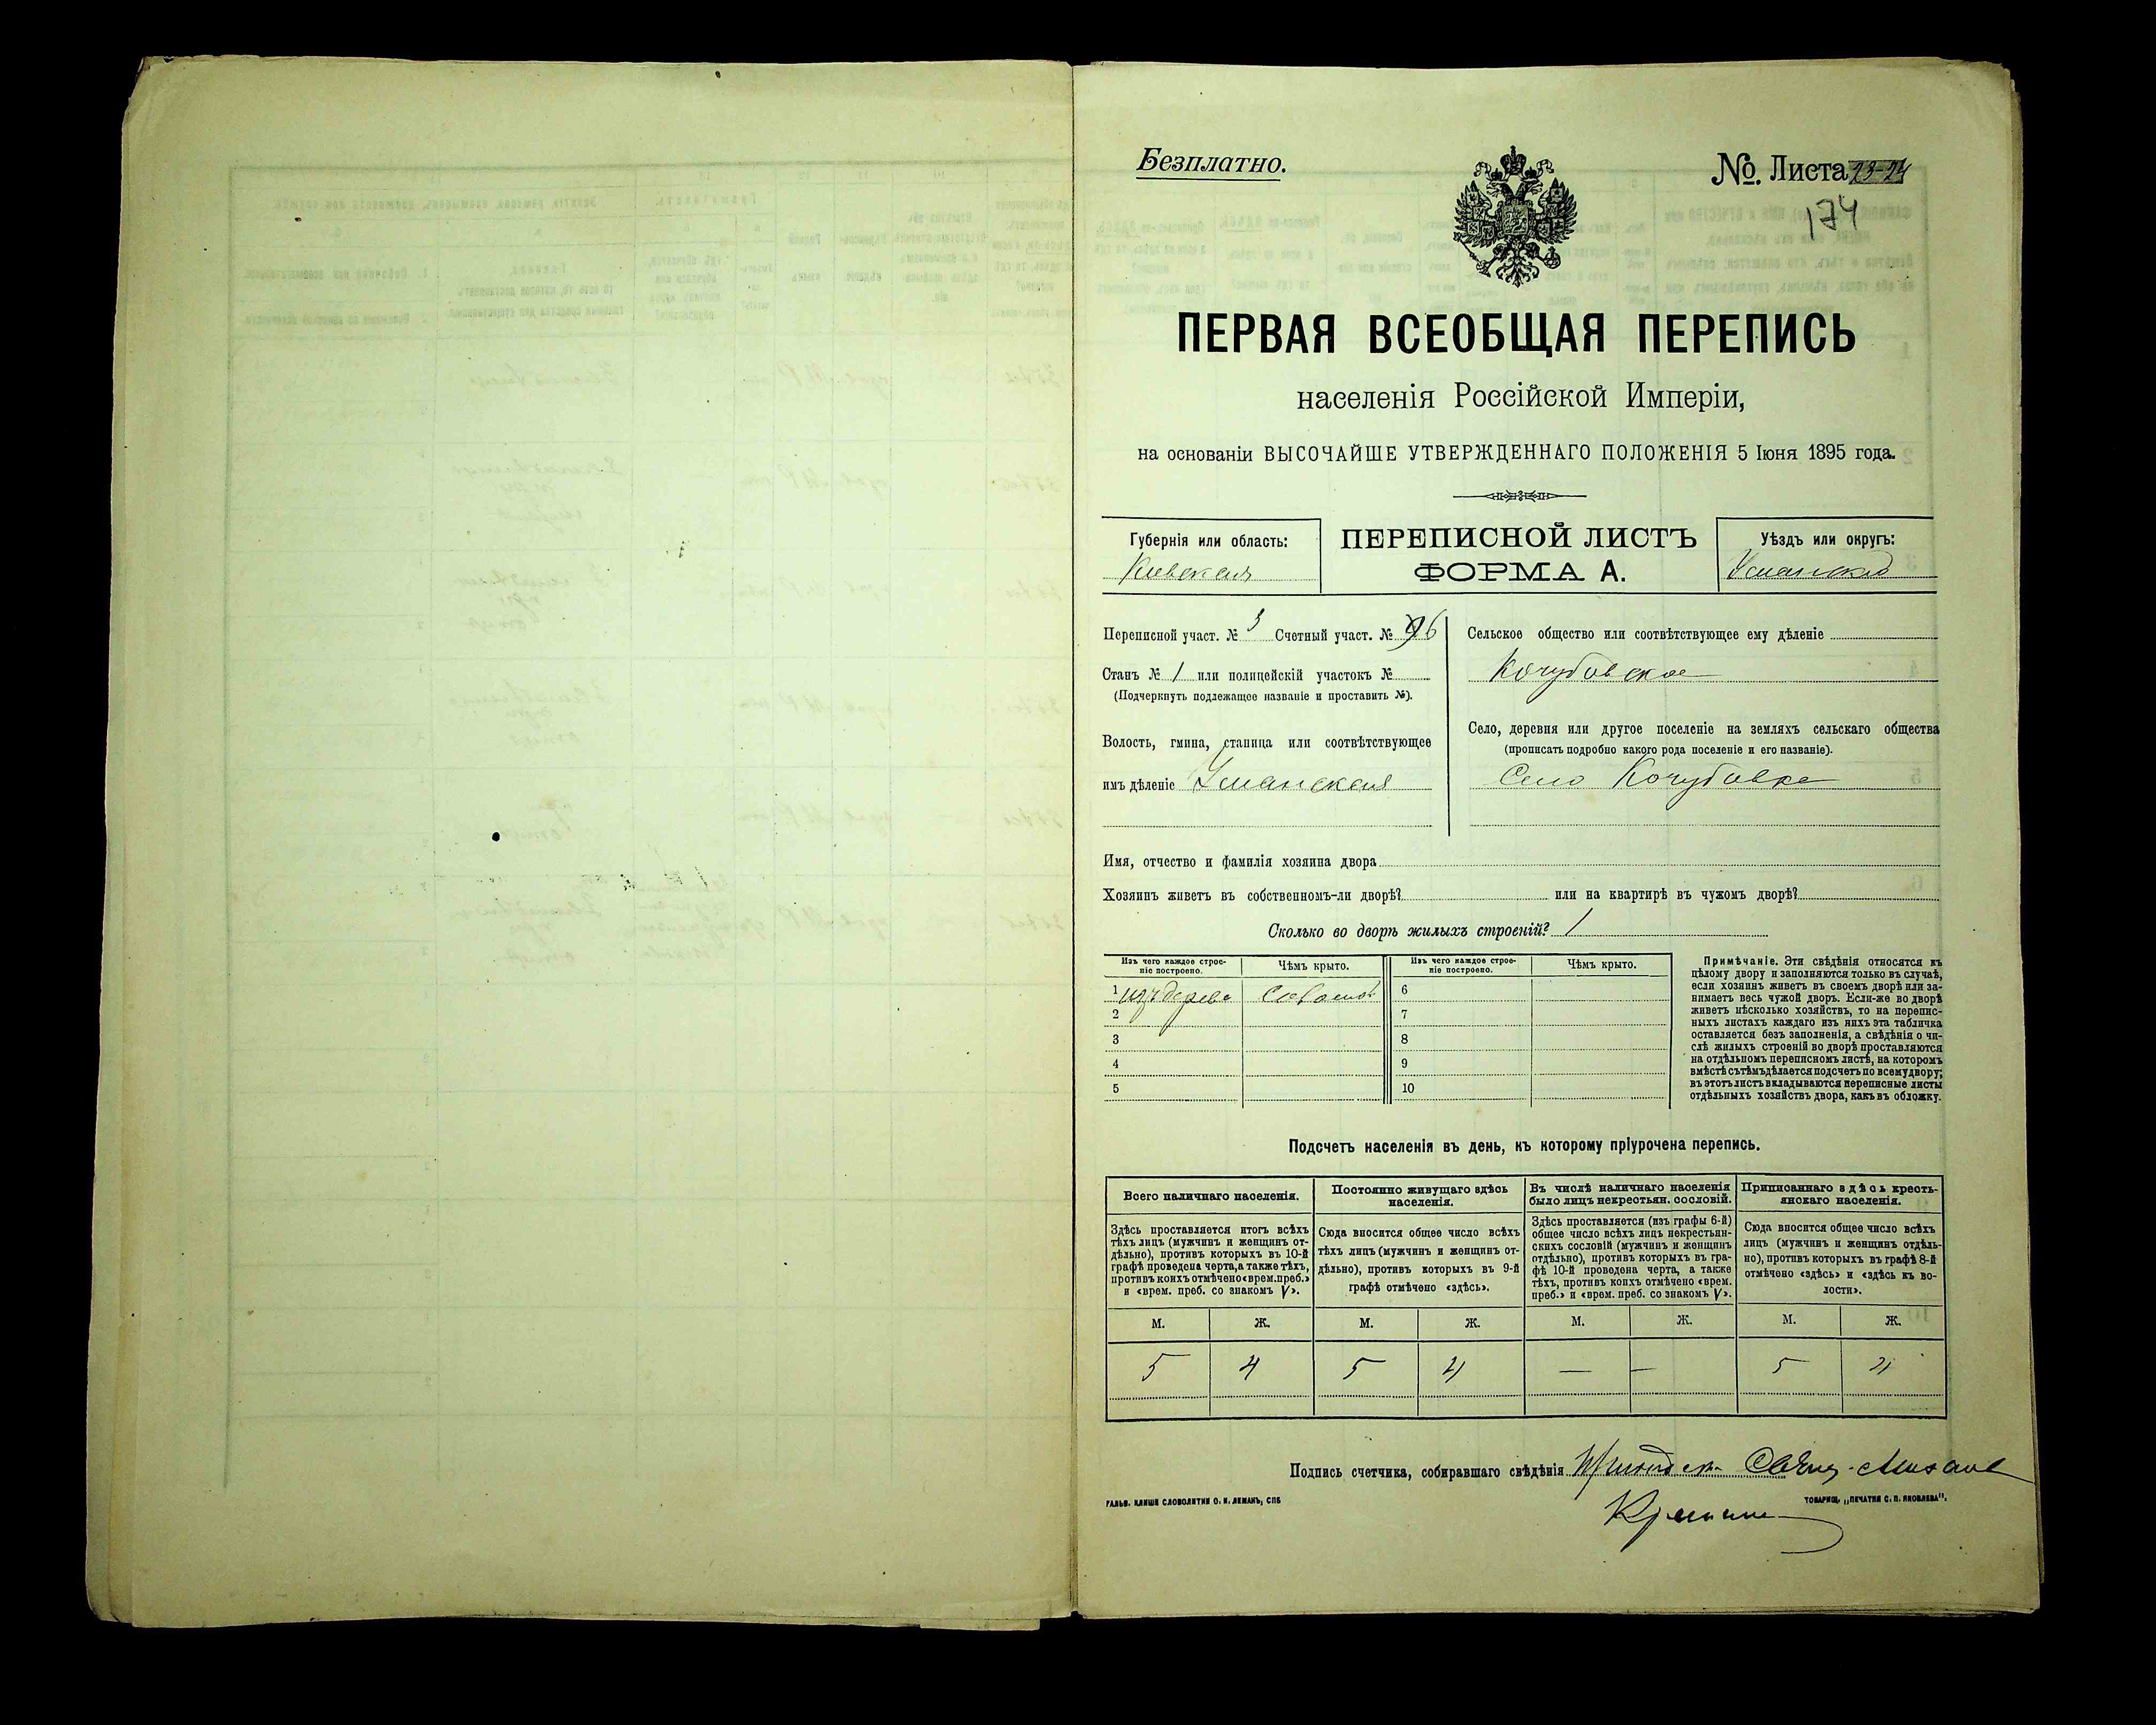 Безплатно.
№. Листа 23-24
174
ПЕРВАЯ ВСЕОБЩАЯ ПЕРЕПИСЬ
населенія Россійской Имперіи,
на основаніи ВЫСОЧАЙШЕ УТВЕРЖДЕННАГО ПОЛОЖЕНІЯ 5 Іюня 1895 года.
Губернія или область:
Киевская
ПЕРЕПИСНОЙ ЛИСТЪ
ФОРМА А.
Уѣздъ или округъ:
Уманский
Переписной участ. № 3 Счетный участ. № 6
Станъ № 1 или полицейскій участокъ №
(Подчеркнуть подлежащее названіе и проставить №).
Волость, гмина, станица или соотвѣтствующее
имъ дѣленіе Уманская
Сельское общество или соотвѣтствующее ему дѣленіе
Кочубовское
Село, деревня или другое поселеніе на земляхъ сельскаго общества
(прописать подробно какого рода поселеніе и его названіе).
Село Кочубовка
Имя, отчество и фамилія хозяина двора
Хозяинъ живетъ въ собственномъ-ли дворѣ? или на квартирѣ въ чужомъ дворѣ?
Сколько во дворѣ жилыхъ строеній? 1
Изъ чего каждое строе-
ніе построено.
Чѣмъ крыто.
Изъ чего каждое строе-
ніе построено.
Чѣмъ крыто.
1 изъ дерева соломой 6
2 7
3 8
4 9
5 10
Примѣчаніе. Эти свѣдѣнія относятся къ
цѣлому двору и заполняются только въ случаѣ,
если хозяинъ живетъ въ своемъ дворѣ или за-
нимаетъ весь чужой дворъ. Если-же во дворѣ
живетъ нѣсколько хозяйствъ, то на перепис-
ныхъ листахъ каждаго изъ нихъ эта табличка
оставляется безъ заполненія, а свѣдѣнія о чи-
слѣ жилыхъ строеній во дворѣ проставляются
на отдѣльномъ переписномъ листѣ, на которомъ
вмѣстѣ съ тѣмъ дѣлается подсчетъ по всему двору;
въ этотъ листъ вкладываются переписные листы
отдѣльныхъ хозяйствъ двора, какъ въ обложку.
Подсчетъ населенія въ день, къ которому пріурочена перепись.
Всего наличнаго населенія.
Здѣсь проставляется итогъ всѣхъ
тѣхъ лицъ (мужчинъ и женщинъ от-
дѣльно), противъ которыхъ въ 10-й
графѣ проведена черта, а также тѣхъ,
противъ коихъ отмѣчено «врем. преб.»
и «врем. преб. со знакомъ V».
Постоянно живущаго здѣсь
населенія.
Сюда вносится общее число всѣхъ
тѣхъ лицъ (мужчинъ и женщинъ от-
дѣльно), противъ которыхъ въ 9-й
графѣ отмѣчено «здѣсь».
Въ числѣ наличнаго населенія
было лицъ некрестьян. сословій.
Здѣсь проставляется (изъ графы 6-й)
общее число всѣхъ лицъ некрестьян-
скихъ сословій (мужчинъ и женщинъ
отдѣльно), противъ которыхъ въ гра-
фѣ 10-й проведена черта, а также
тѣхъ, противъ коихъ отмѣчено «врем.
преб.» и «врем. преб. со знакомъ V».
Приписаннаго здѣсь кресть-
янскаго населенія.
Сюда вносится общее число всѣхъ
лицъ (мужчинъ и женщинъ отдѣль-
но), противъ которыхъ въ графѣ 8-й
отмѣчено «здѣсь» и «здѣсь къ во-
лости».
М. Ж. М. Ж. М. Ж. М. Ж.
5 4 5 4 — — 5 4
Подпись счетчика, собиравшаго свѣдѣнія
ГАЛЬВ. КЛИШЕ СЛОВОЛИТНИ О. И. ЛЕМАНЪ, СПБ
ТОВАРИЩ. „ПЕЧАТНЯ С. П. ЯКОВЛЕВА".